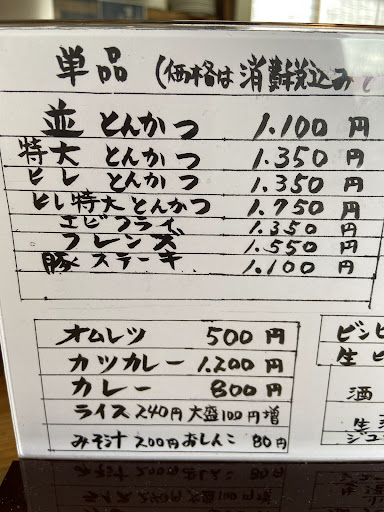 単品 (価格は消費税込みで
並 とんかつ 1.100 円
特大 とんかつ 1.350 円
ヒレ とんかつ 1.350 円
ヒレ特大とんかつ 1.750 円
エビフライ 1.350 円
フレンズ 1.550 円
豚ステーキ 1.100 円
オムレツ 500 円
カツカレー 1.200 円
カレー 800 円
ライス 240円 大盛100円増
みそ汁 200円 おしんこ 80円
ビンビ
生ビ
酒
生
ジュ